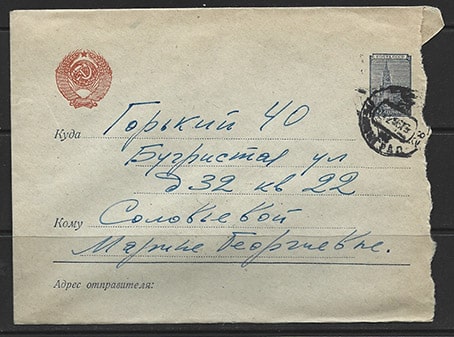 ПОЧТА СССР
Куда Горький 40
Бугристая ул
д 32 кв 22
Кому Соловьевой
Марине Георгиевне.
Адрес отправителя: